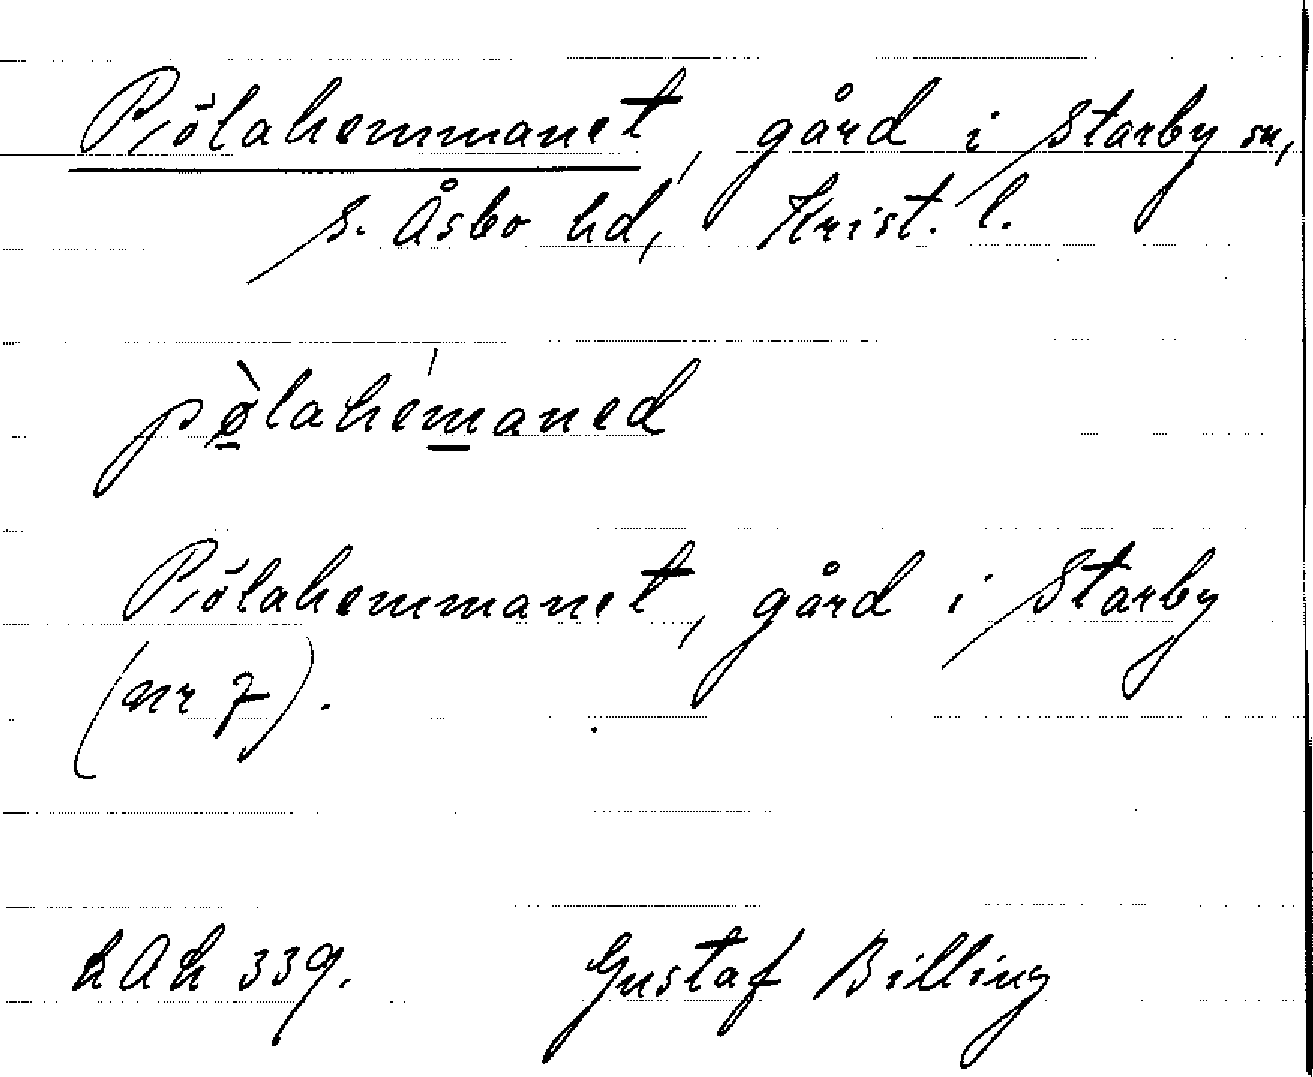 Pölahemmanet, gård i Starby sn,
S. Åsbo hd, Krist. l.
pø̀lahémaned
Pölahemmanet, gård i Starby
(nr 7).
LAL 339. Gustaf Billing